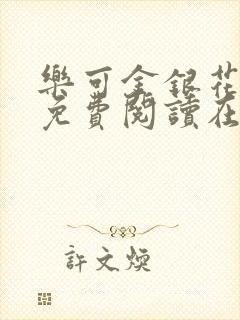 樂可金銀花
免費閱讀在
許文煥